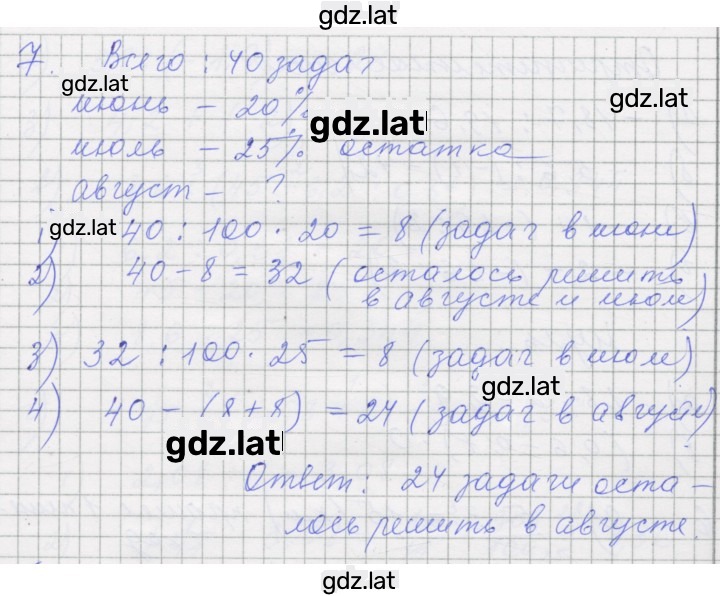 gdz.lat
7. Всего : 40 задач
gdz.lat
июнь – 20%
gdz.lat
gdz.lat
июль – 25% остатка
август – ?
gdz.lat
1) 40 : 100 · 20 = 8 (задач в июне)
2) 40 – 8 = 32 (осталось решить
в августе и июле)
3) 32 : 100 · 25 = 8 (задач в июле)
gdz.lat
4) 40 – (8 + 8) = 24 (задач в августе)
gdz.lat
Ответ: 24 задачи оста –
лось решить в августе.
gdz.lat